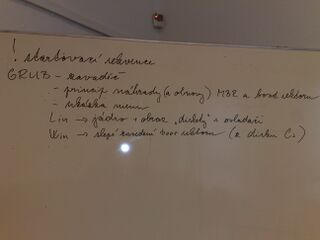 ! startovací sekvence
GRUB - zavaděč
- princip náhrady (a obnovy) MBR a boot sektoru
- ukázka menu
Lin → jádro + obraz "diskety" s ovladači
Win → slepé zavedení boot sektoru (z disku C:)